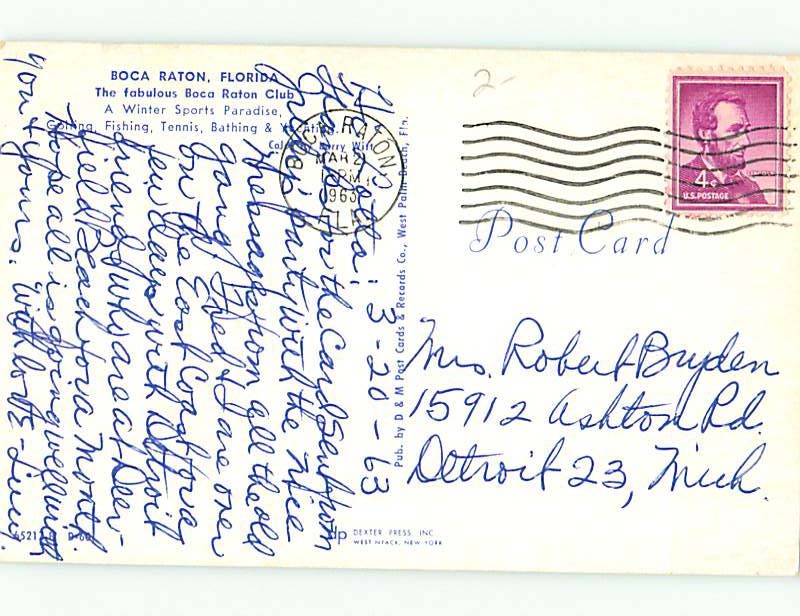 BOCA RATON, FLORIDA
The fabulous Boca Raton Club
A Winter Sports Paradise,
Golfing, Fishing, Tennis, Bathing & Yachting.
Color by Harry Witt
BOCA RATON
MAR 2
PM
1963
FLA.
2-
4¢
U.S. POSTAGE
Post Card
Pub. by D & M Post Cards & Records Co., West Palm Beach, Fla.
3-20-63
Thanks for the Card sent from
party with the nice
messages from all the old
gang. Fred & I are over
on the East Coast for a
few days with Detroit
friends who are at Deer-
field Beach for a month
Hope all is going well with
you & yours. With love - Lucy.
Mrs. Robert Bryden
15912 Ashton Rd.
Detroit 23, Mich.
65212
dp
DEXTER PRESS, INC.
WEST NYACK, NEW YORK